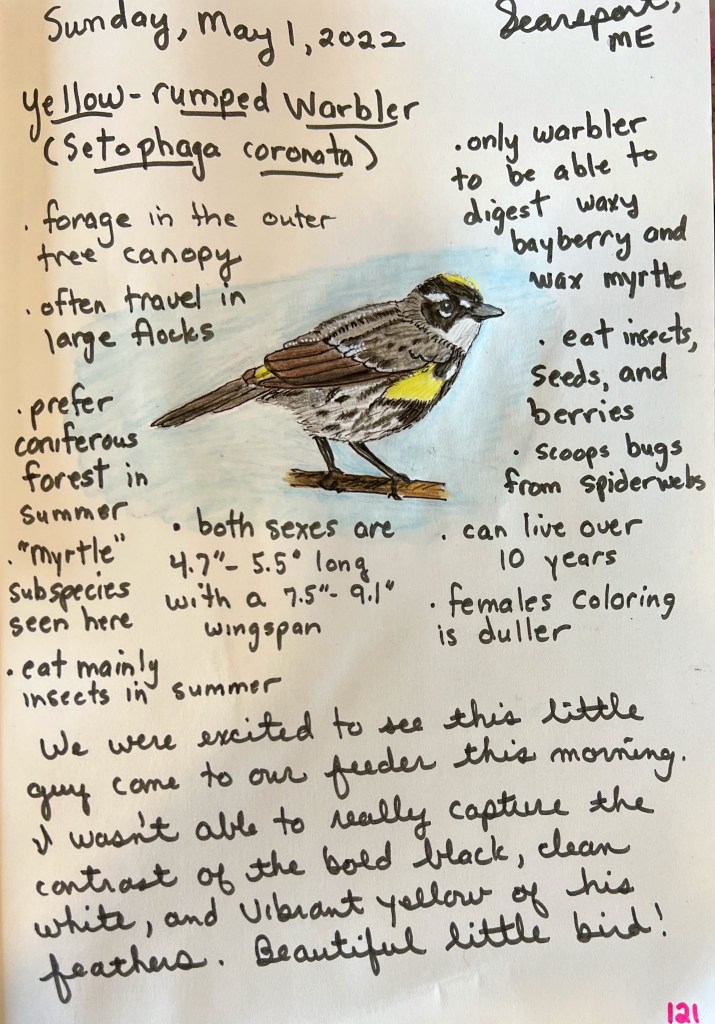 Sunday, May 1, 2022
Searsport,
ME
Yellow-rumped Warbler
(Setophaga coronata)
• forage in the outer
tree canopy
• often travel in
large flocks
• prefer
coniferous
forest in
summer
• "myrtle"
subspecies
seen here
• eat mainly
insects in summer
• both sexes are
4.7"- 5.5" long
with a 7.5"- 9.1"
wingspan
• only warbler
to be able to
digest waxy
bayberry and
wax myrtle
• eat insects,
seeds, and
berries
• scoops bugs
from spiderwebs
• can live over
10 years
• females coloring
is duller
We were excited to see this little
guy come to our feeder this morning.
I wasn't able to really capture the
contrast of the bold black, clean
white, and vibrant yellow of his
feathers. Beautiful little bird!
121